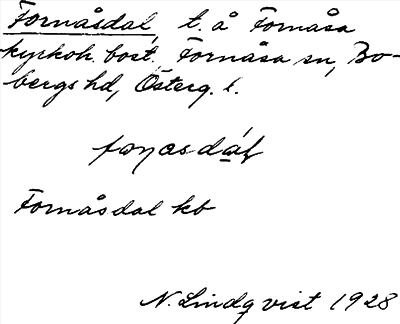 Fornåsdal, t. å Fornåsa
kyrkoh. bost. Fornåsa sn, Bo-
bergs hd, Österg. l.
Fornåsdal kb
N. Lindqvist 1928